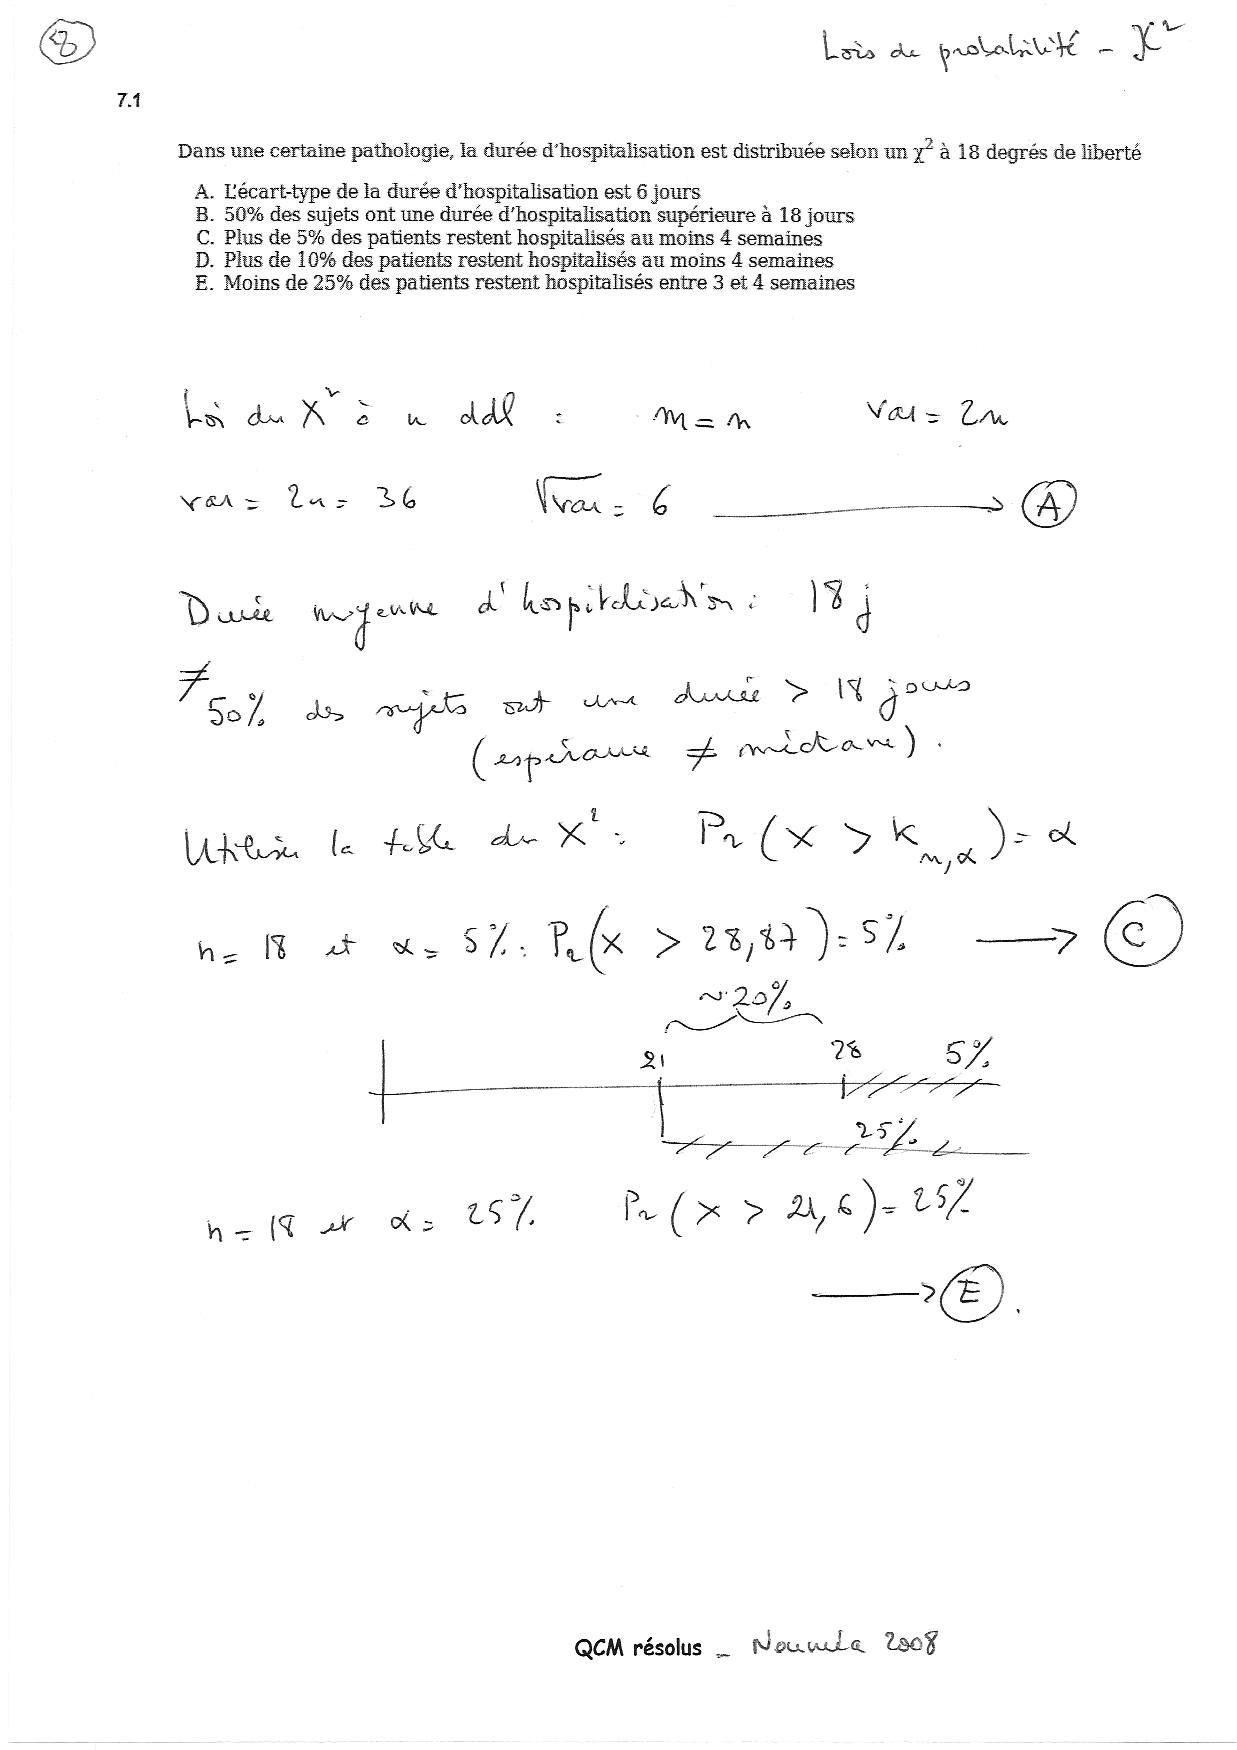 8
Lois de probabilité - χ²
7.1
Dans une certaine pathologie, la durée d'hospitalisation est distribuée selon un χ² à 18 degrés de liberté
A. L'écart-type de la durée d'hospitalisation est 6 jours
B. 50% des sujets ont une durée d'hospitalisation supérieure à 18 jours
C. Plus de 5% des patients restent hospitalisés au moins 4 semaines
D. Plus de 10% des patients restent hospitalisés au moins 4 semaines
E. Moins de 25% des patients restent hospitalisés entre 3 et 4 semaines
Loi du X² à n ddl : m = n var = 2n
var = 2n = 36 √var = 6 → A
Durée moyenne d'hospitalisation : 18 j
≠
50% des sujets ont une durée > 18 jours
(espérance ≠ médiane).
Utiliser la table du X² : Pr (X > K n,α) = α
n = 18 et α = 5% : Pr (X > 28,87) = 5% → C
~ 20%
21 28 5%
25%
n = 18 et α = 25% Pr (X > 21,6) = 25%
→ E.
QCM résolus - 2008